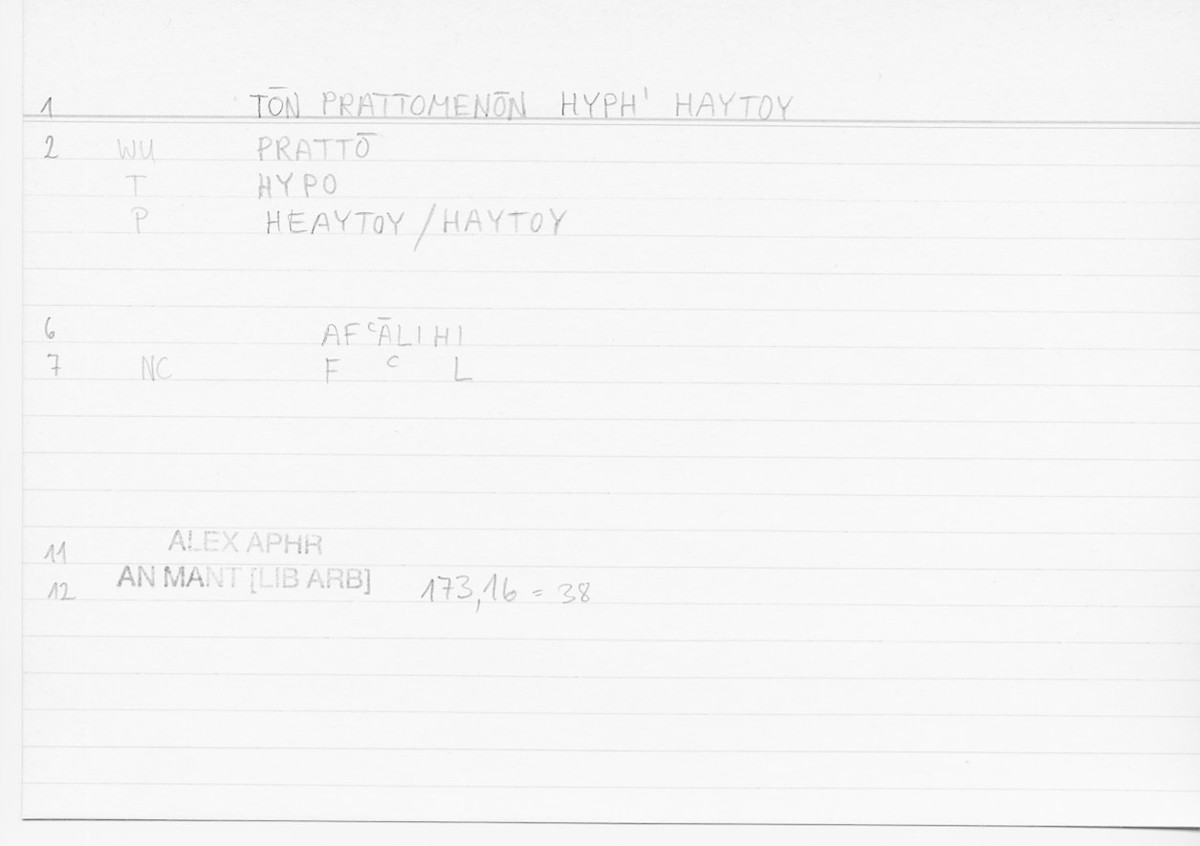 1 TŌN PRATTOMENŌN HYPH' HAYTOY
2 WU PRATTŌ
T HYPO
P HEAYTOY / HAYTOY
6 AFᶜĀLIHI
7 NC F ᶜ L
11 ALEX APHR
12 AN MANT [LIB ARB] 173,16 = 38